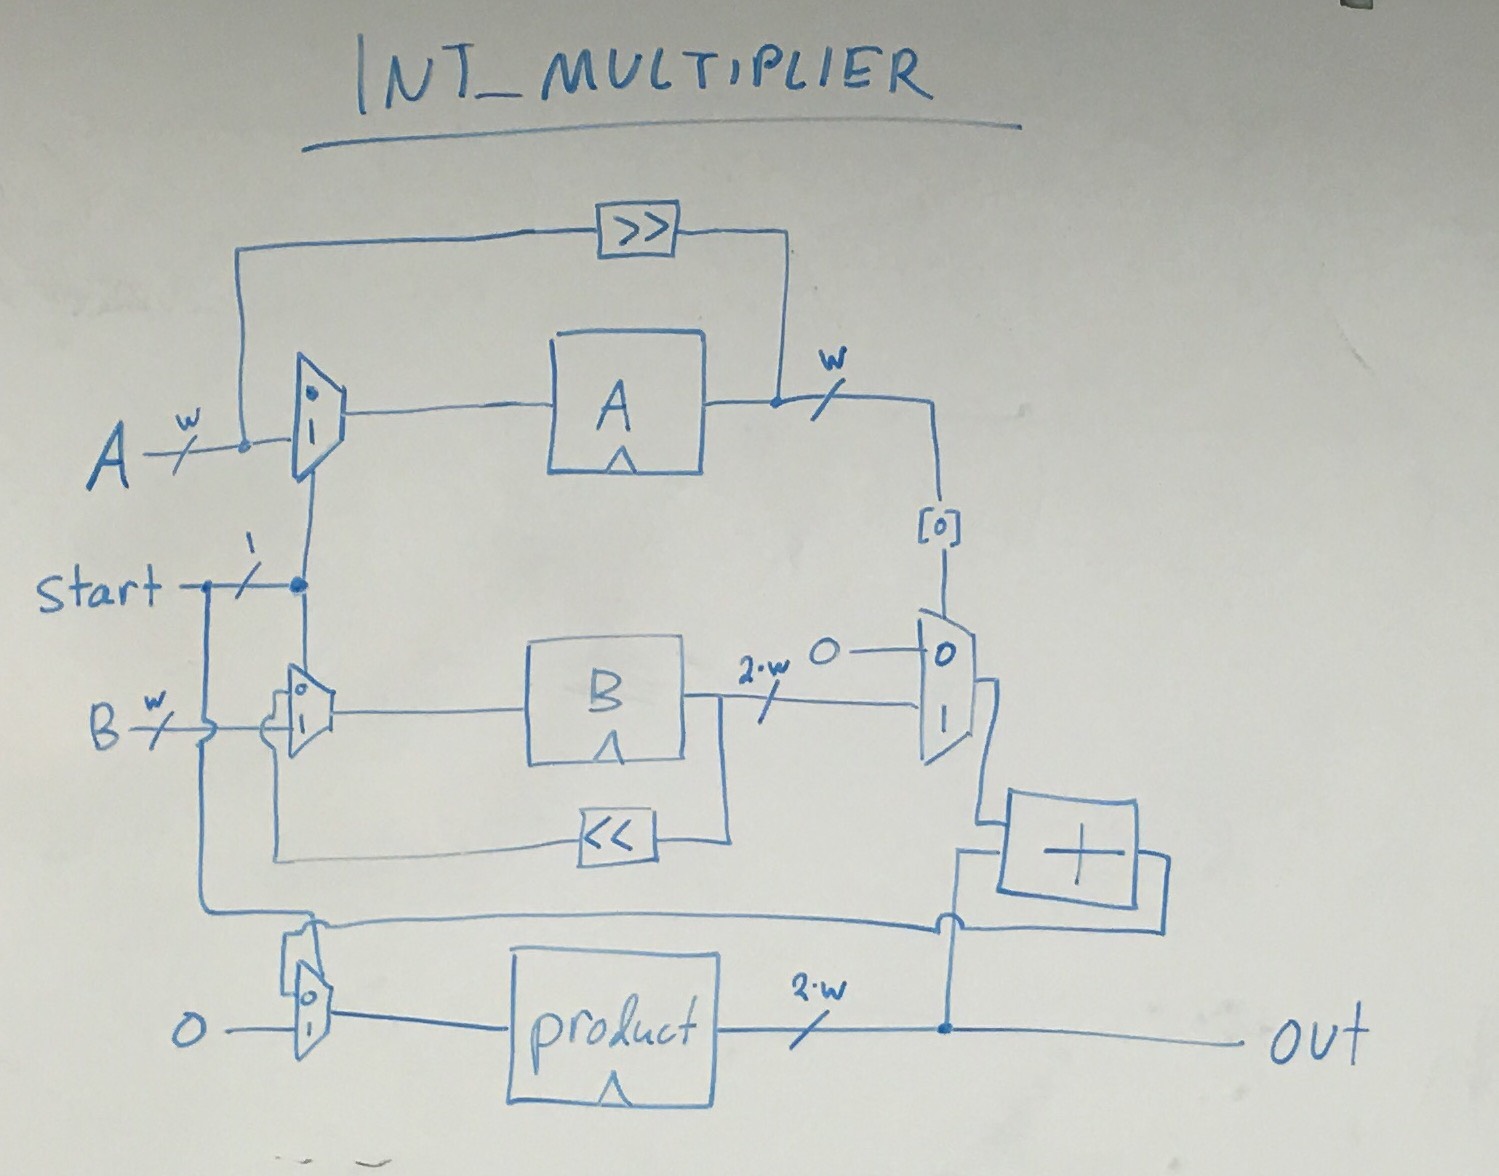 INT_MULTIPLIER
>>
w
A
w
A
1
[0]
start
1
0
B
w
0
1
B
2·w
0
0
1
<<
+
0
0
1
product
2·w
out